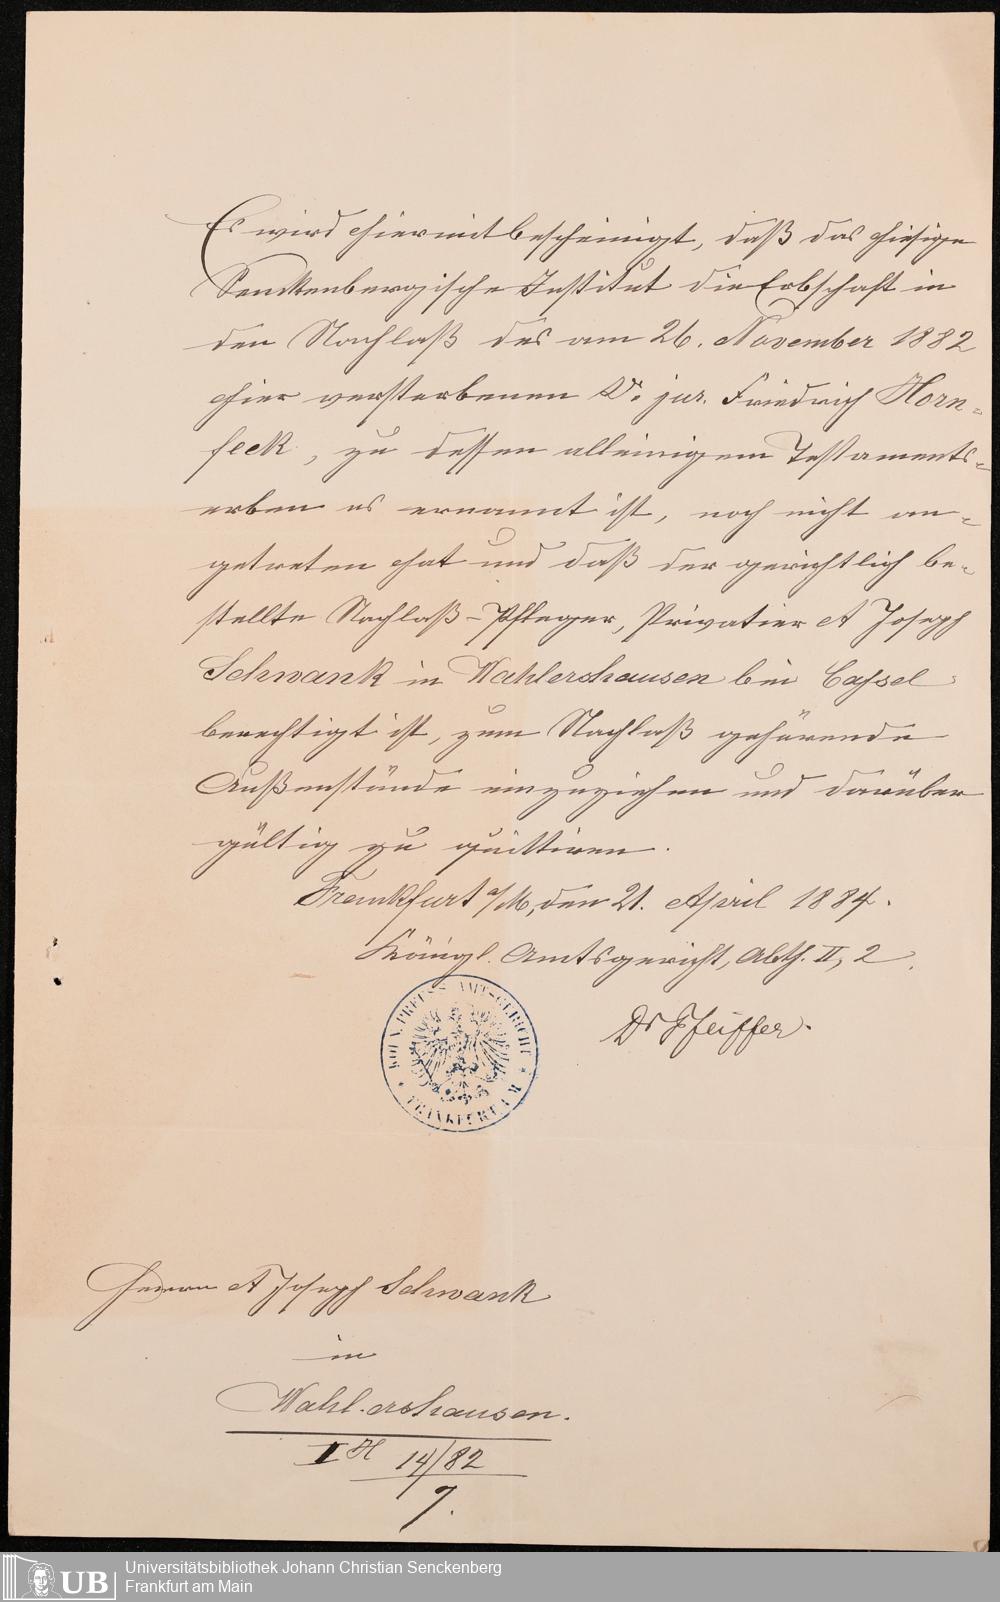 Es wird hiermit bescheinigt, daß das hiesige
Senckenbergische Institut die Erbschaft in
den Nachlaß des am 26. November 1882
hier verstorbenen Dr. jur. Friedrich Horn-
feck, zu dessen alleinigem Testaments-
erben es ernannt ist, noch nicht an-
getreten hat und daß der gerichtlich be-
stellte Nachlaß-Pfleger, Privatier A Joseph
Schwank in Wahlershausen bei Cassel
berechtigt ist, zum Nachlaß gehörende
Außenstände einzuziehen und darüber
gültig zu quittiren.
Frankfurt a/M, den 21. April 1884.
Königl. Amtsgericht, Abth. II, 2.
Dr Pfeiffer.
KÖN. PREUSS. AMTSGERICHT
* FRANKFURT A. M. *
Herrn A Joseph Schwank
in
Wahlershausen.
II H 14/82
7.
Universitätsbibliothek Johann Christian Senckenberg
Frankfurt am Main
UB